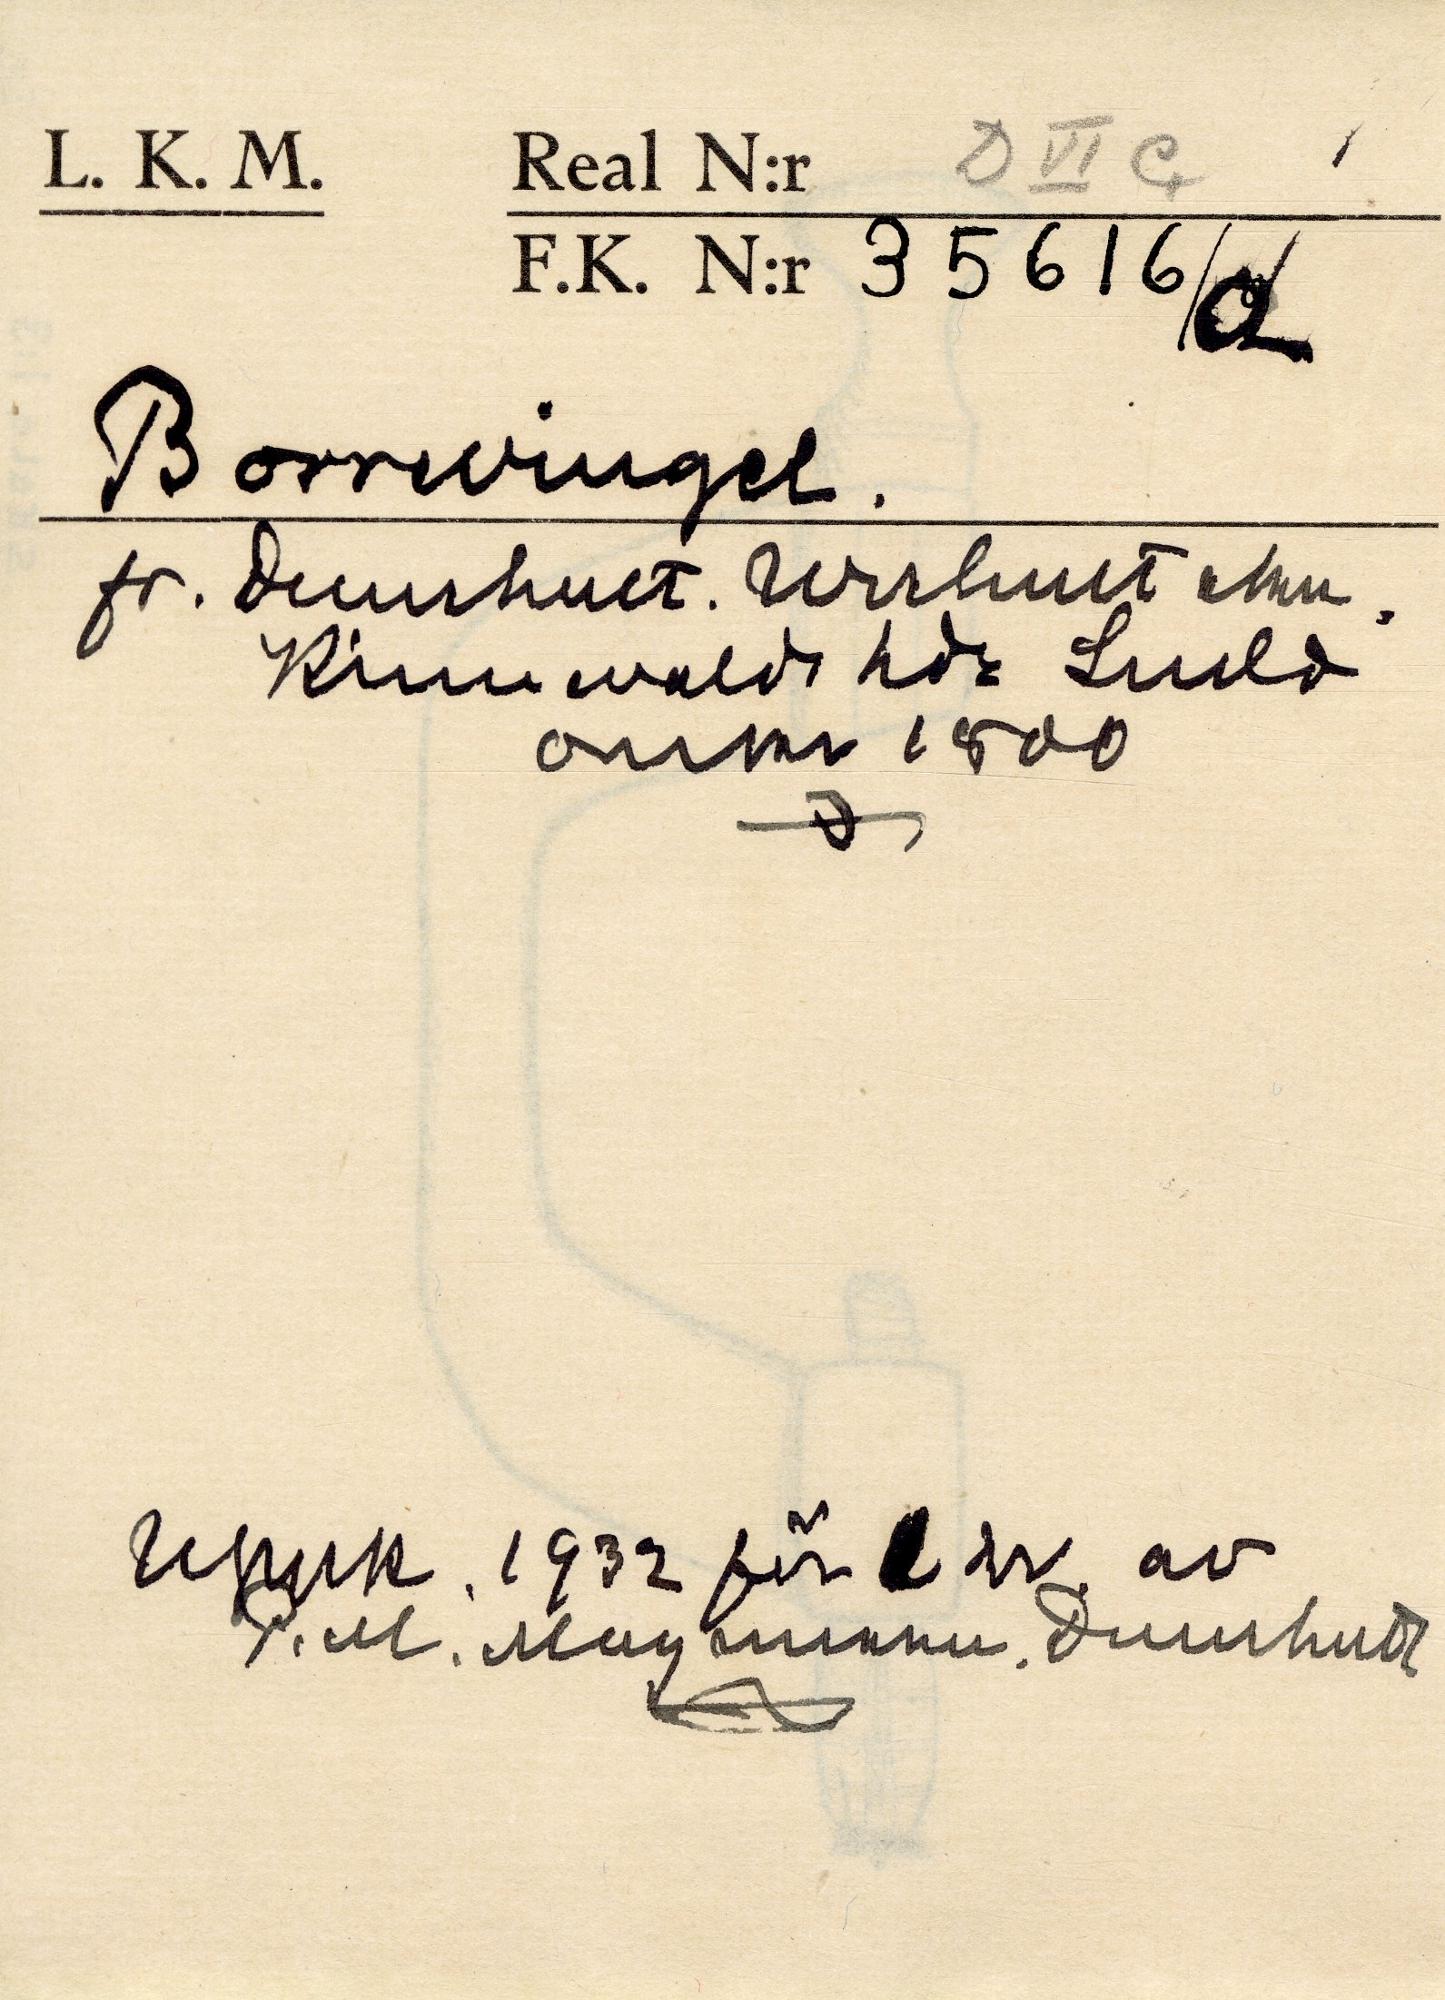 L. K. M. Real N:r D VI C
F.K. N:r 35616/a
Borrwingel.
fr. Dunshult. Urshult skn.
Kinnevalds hds Smld
omkr 1800
Uppk. 1932 för kr. av
P. M. Magnusson. Dunshult